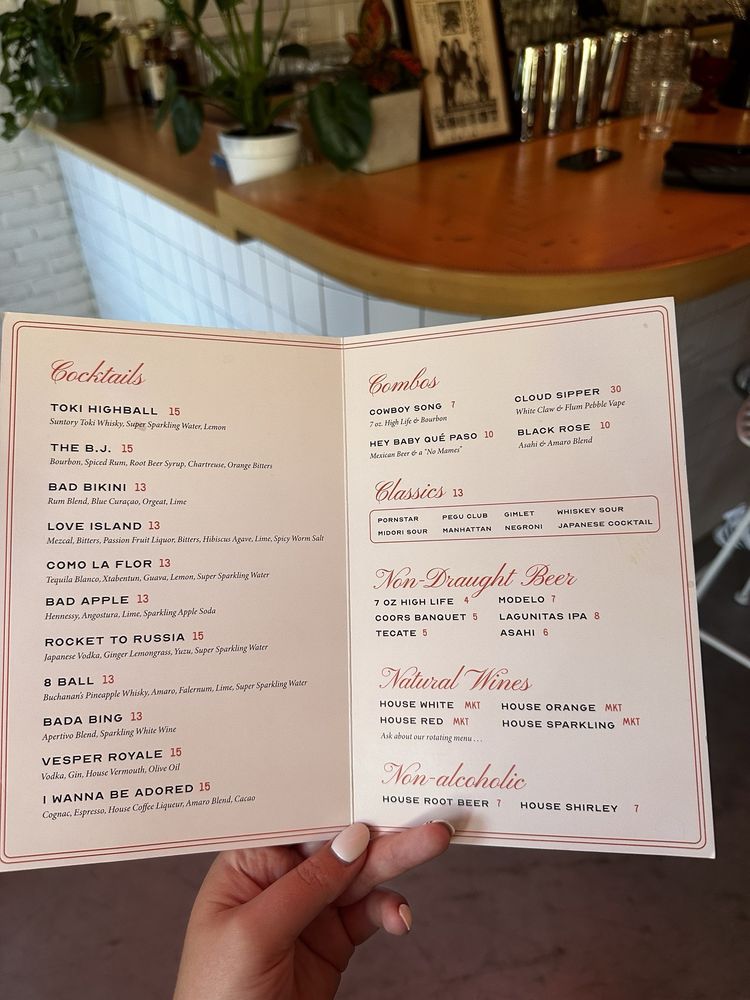 Cocktails
TOKI HIGHBALL 15
Suntory Toki Whisky, Super Sparkling Water, Lemon
THE B.J. 15
Bourbon, Spiced Rum, Root Beer Syrup, Chartreuse, Orange Bitters
BAD BIKINI 13
Rum Blend, Blue Curaçao, Orgeat, Lime
LOVE ISLAND 13
Mezcal, Bitters, Passion Fruit Liquor, Bitters, Hibiscus Agave, Lime, Spicy Worm Salt
COMO LA FLOR 13
Tequila Blanco, Xtabentun, Guava, Lemon, Super Sparkling Water
BAD APPLE 13
Hennessy, Angostura, Lime, Sparkling Apple Soda
ROCKET TO RUSSIA 15
Japanese Vodka, Ginger Lemongrass, Yuzu, Super Sparkling Water
8 BALL 13
Buchanan's Pineapple Whisky, Amaro, Falernum, Lime, Super Sparkling Water
BADA BING 13
Apertivo Blend, Sparkling White Wine
VESPER ROYALE 15
Vodka, Gin, House Vermouth, Olive Oil
I WANNA BE ADORED 15
Cognac, Espresso, House Coffee Liqueur, Amaro Blend, Cacao
Combos
COWBOY SONG 7
7 oz. High Life & Bourbon
HEY BABY QUÉ PASO 10
Mexican Beer & a "No Mames"
CLOUD SIPPER 30
White Claw & Flum Pebble Vape
BLACK ROSE 10
Asahi & Amaro Blend
Classics 13
PORNSTAR PEGU CLUB GIMLET WHISKEY SOUR
MIDORI SOUR MANHATTAN NEGRONI JAPANESE COCKTAIL
Non-Draught Beer
7 OZ HIGH LIFE 4 MODELO 7
COORS BANQUET 5 LAGUNITAS IPA 8
TECATE 5 ASAHI 6
Natural Wines
HOUSE WHITE MKT HOUSE ORANGE MKT
HOUSE RED MKT HOUSE SPARKLING MKT
Ask about our rotating menu . . .
Non-alcoholic
HOUSE ROOT BEER 7 HOUSE SHIRLEY 7